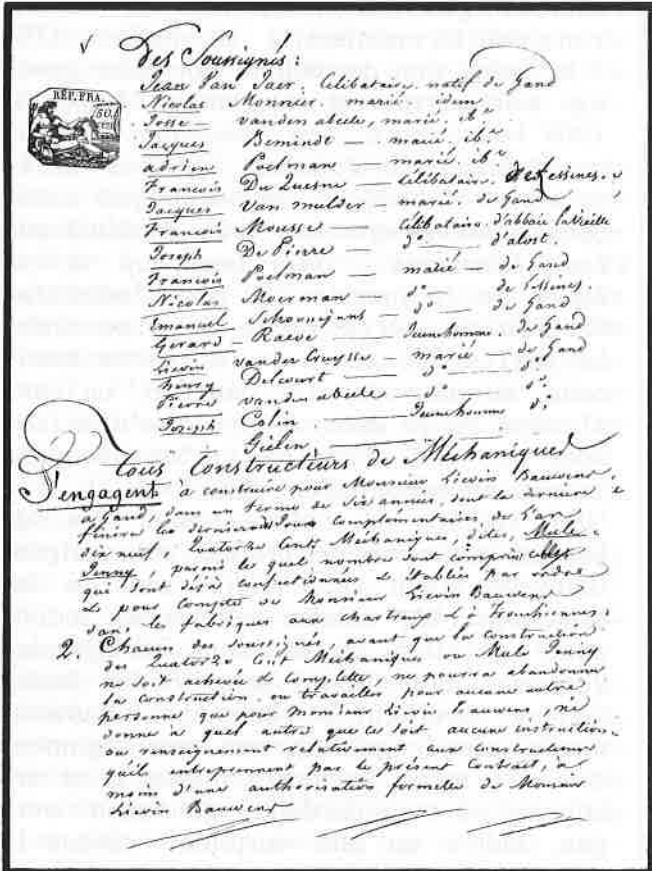 Des Soussignés :
Jean Van Jaer, Célibataire, natif de Gand
RÉP. FRA.
50.
Nicolas Monnier, marié, idem
Josse — vanden abeele, marié, ib.
Jacques Beminde — marié, ib.
adrien Poelman — marié, ib.
François Du Quesne — Célibataire. de Lessines.
Jacques Van mulder — marié, de Gand
François Mousse — Célibataire, d'abbaie
Joseph De Pierre — d° — d'alost.
François Poelman — marié — de Gand
Nicolas Moerman — d° — de Lessines
Emanuel — d° — de Gand
Gerard — Raeve — Jeunhomme. de Gand
Lievin vander Cruysse — marié — de Gand
Delcourt — d° — d°
Pierre vanden abeele — d° — d°
Joseph Colin — Jeunhomme d°
Gielin
tous Constructeurs de Méchaniques
S'engagent à construire pour Monsieur Liévin Bauwens
à Gand, dans un terme de Six années, dont la dernière
finira les derniers Jours complémentaires de l'an
dixneuf, Quatorze Cents Méchaniques, dites, Mule
Jenny, parmi le quel nombre sont compris celles
qui sont déjà confectionnées & établies par ordre
& pour Compte de Monsieur Liévin Bauwens
dans les fabriques aux chartreux & à Tronchiennes.
2. Chacun des soussignés, avant que la construction
des Quatorze Cent Méchaniques ou Mule Jenny
ne soit achevée & complette, ne pourra abandonner
la construction, ou travailler pour aucune autre
personne que pour Monsieur Liévin Bauwens, ni
donner à quel autre que ce soit, aucune instruction
ou renseignement relativement aux constructions
qu'il entreprennent par le présent Contrat, à
moins d'une authorisation formelle de Monsieur
Liévin Bauwens